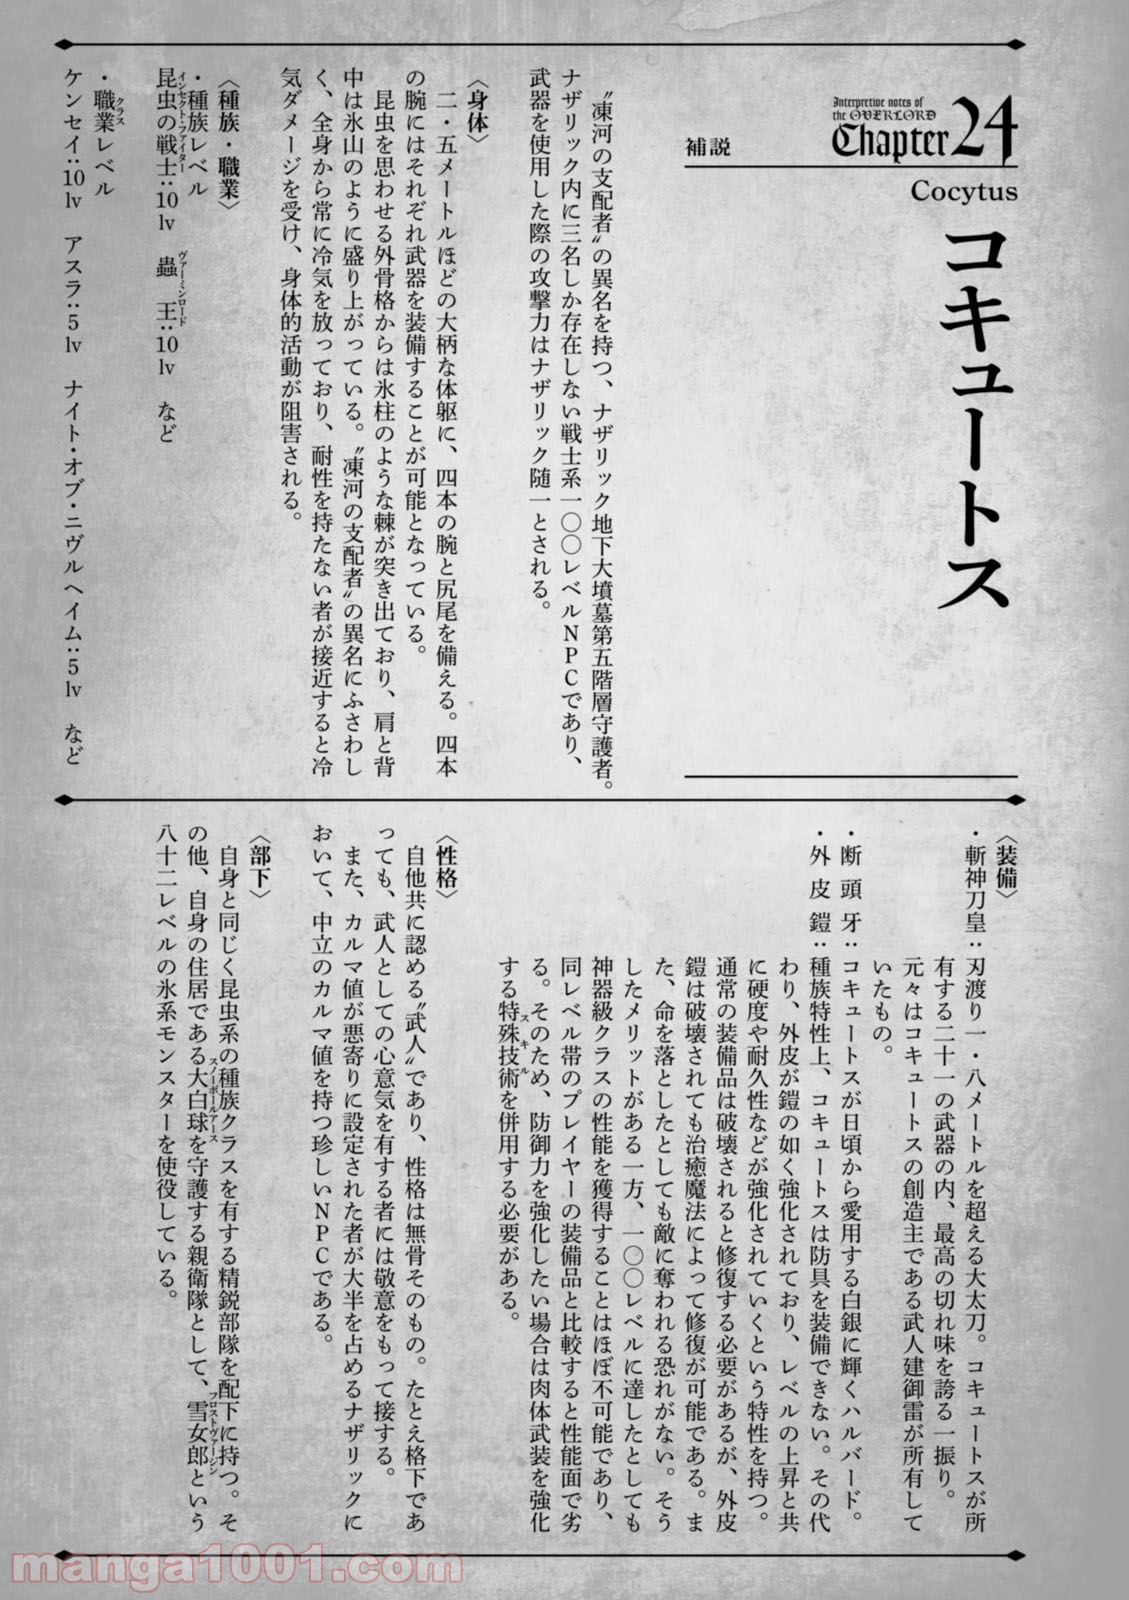 Interpretive notes of
the OVERLORD
Chapter 24
補説
Cocytus
コキュートス
〝凍河の支配者〟の異名を持つ、ナザリック地下大墳墓第五階層守護者。
ナザリック内に三名しか存在しない戦士系一〇〇レベルNPCであり、
武器を使用した際の攻撃力はナザリック随一とされる。
〈身体〉
二・五メートルほどの大柄な体躯に、四本の腕と尻尾を備える。四本
の腕にはそれぞれ武器を装備することが可能となっている。
昆虫を思わせる外骨格からは氷柱のような棘が突き出ており、肩と背
中は氷山のように盛り上がっている。〝凍河の支配者〟の異名にふさわし
く、全身から常に冷気を放っており、耐性を持たない者が接近すると冷
気ダメージを受け、身体的活動が阻害される。
〈種族・職業〉
・種族レベル
インセクト・ファイター ヴァーミンロード
昆虫の戦士：10lv 蟲王：10lv など
クラス
・職業レベル
ケンセイ：10lv アスラ：5lv ナイト・オブ・ニヴルヘイム：5lv など
〈装備〉
・斬神刀皇：刃渡り一・八メートルを超える大太刀。コキュートスが所
有する二十一の武器の内、最高の切れ味を誇る一振り。
元々はコキュートスの創造主である武人建御雷が所有して
いたもの。
・断頭牙：コキュートスが日頃から愛用する白銀に輝くハルバード。
・外皮鎧：種族特性上、コキュートスは防具を装備できない。その代
わり、外皮が鎧の如く強化されており、レベルの上昇と共
に硬度や耐久性などが強化されていくという特性を持つ。
通常の装備品は破壊されると修復する必要があるが、外皮
鎧は破壊されても治癒魔法によって修復が可能である。ま
た、命を落としたとしても敵に奪われる恐れがない。そう
したメリットがある一方、一〇〇レベルに達したとしても
神器級クラスの性能を獲得することはほぼ不可能であり、
同レベル帯のプレイヤーの装備品と比較すると性能面で劣
る。そのため、防御力を強化したい場合は肉体武装を強化
スキル
する特殊技術を併用する必要がある。
〈性格〉
自他共に認める〝武人〟であり、性格は無骨そのもの。たとえ格下であ
っても、武人としての心意気を有する者には敬意をもって接する。
また、カルマ値が悪寄りに設定された者が大半を占めるナザリックに
おいて、中立のカルマ値を持つ珍しいNPCである。
〈部下〉
自身と同じく昆虫系の種族クラスを有する精鋭部隊を配下に持つ。そ
スノーボールアース フロストヴァージン
の他、自身の住居である大白球を守護する親衛隊として、雪女郎という
八十二レベルの氷系モンスターを使役している。
manga1001.com